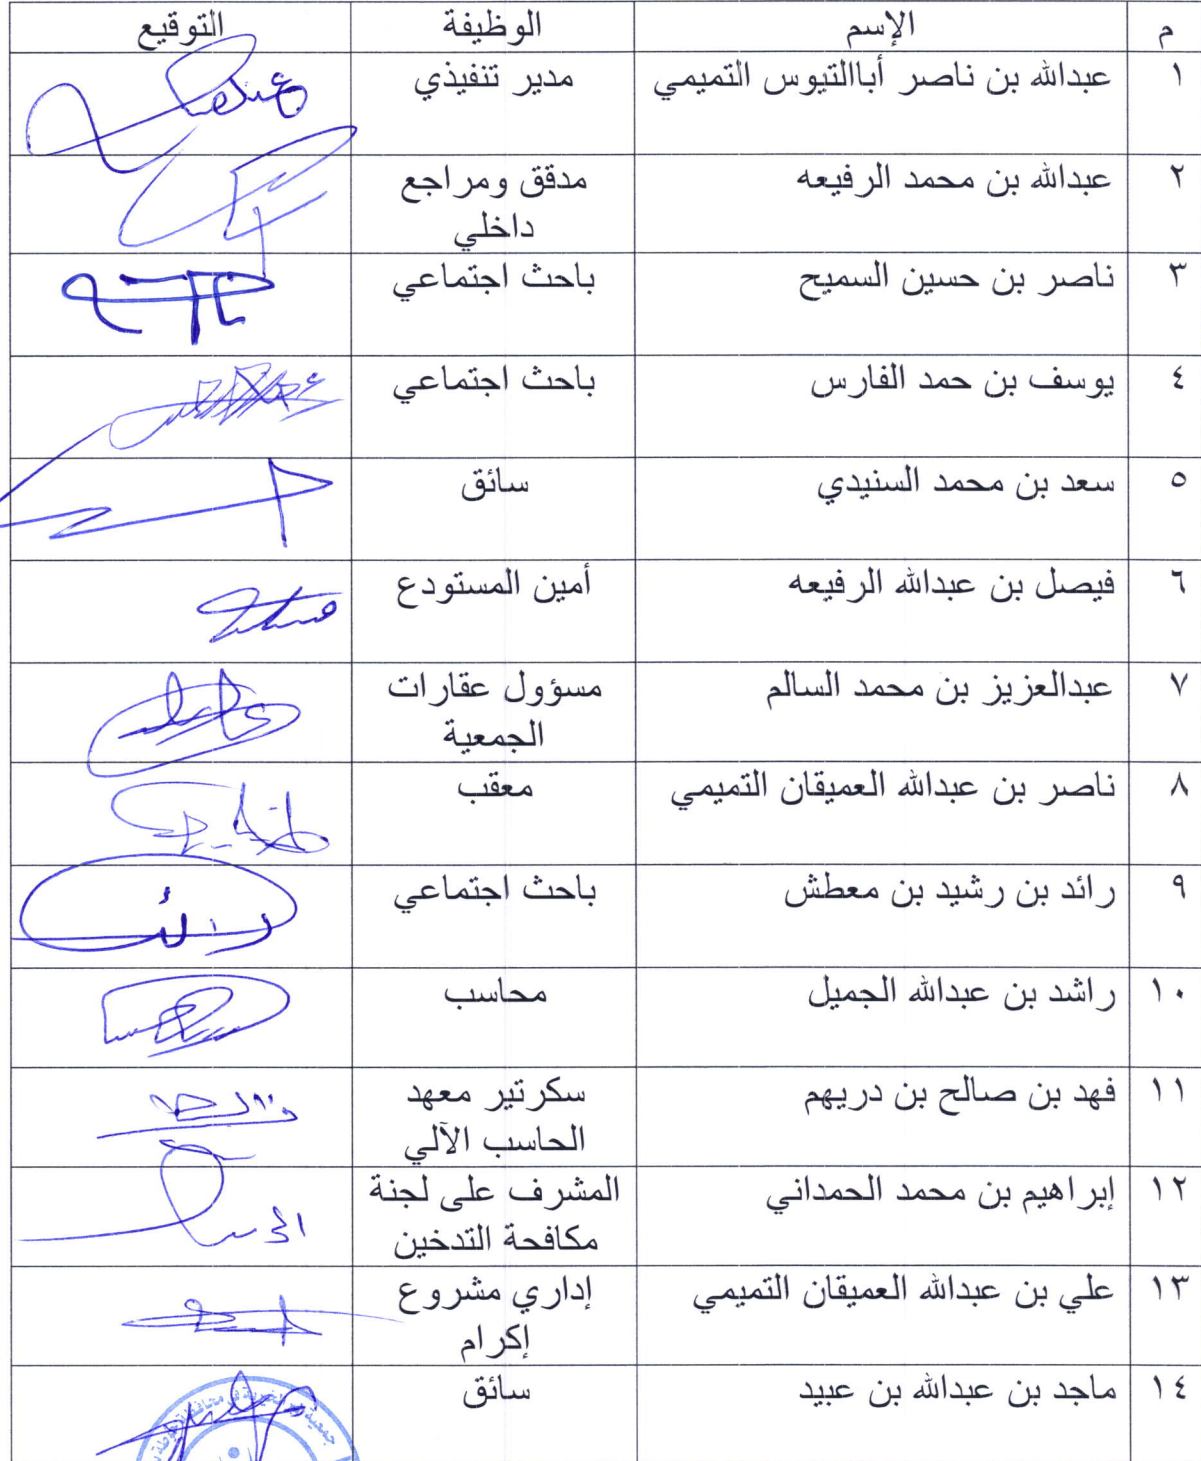 م الإسم الوظيفة التوقيع
١ عبدالله بن ناصر أباالتيوس التميمي مدير تنفيذي
٢ عبدالله بن محمد الرفيعه مدقق ومراجع
داخلي
٣ ناصر بن حسين السميح باحث اجتماعي
٤ يوسف بن حمد الفارس باحث اجتماعي
٥ سعد بن محمد السنيدي سائق
٦ فيصل بن عبدالله الرفيعه أمين المستودع
٧ عبدالعزيز بن محمد السالم مسؤول عقارات
الجمعية
٨ ناصر بن عبدالله العميقان التميمي معقب
٩ رائد بن رشيد بن معطش باحث اجتماعي
رائد
١٠ راشد بن عبدالله الجميل محاسب
١١ فهد بن صالح بن دريهم سكرتير معهد
الحاسب الآلي
١٢ إبراهيم بن محمد الحمداني المشرف على لجنة
مكافحة التدخين
١٣ علي بن عبدالله العميقان التميمي إداري مشروع
إكرام
١٤ ماجد بن عبدالله بن عبيد سائق